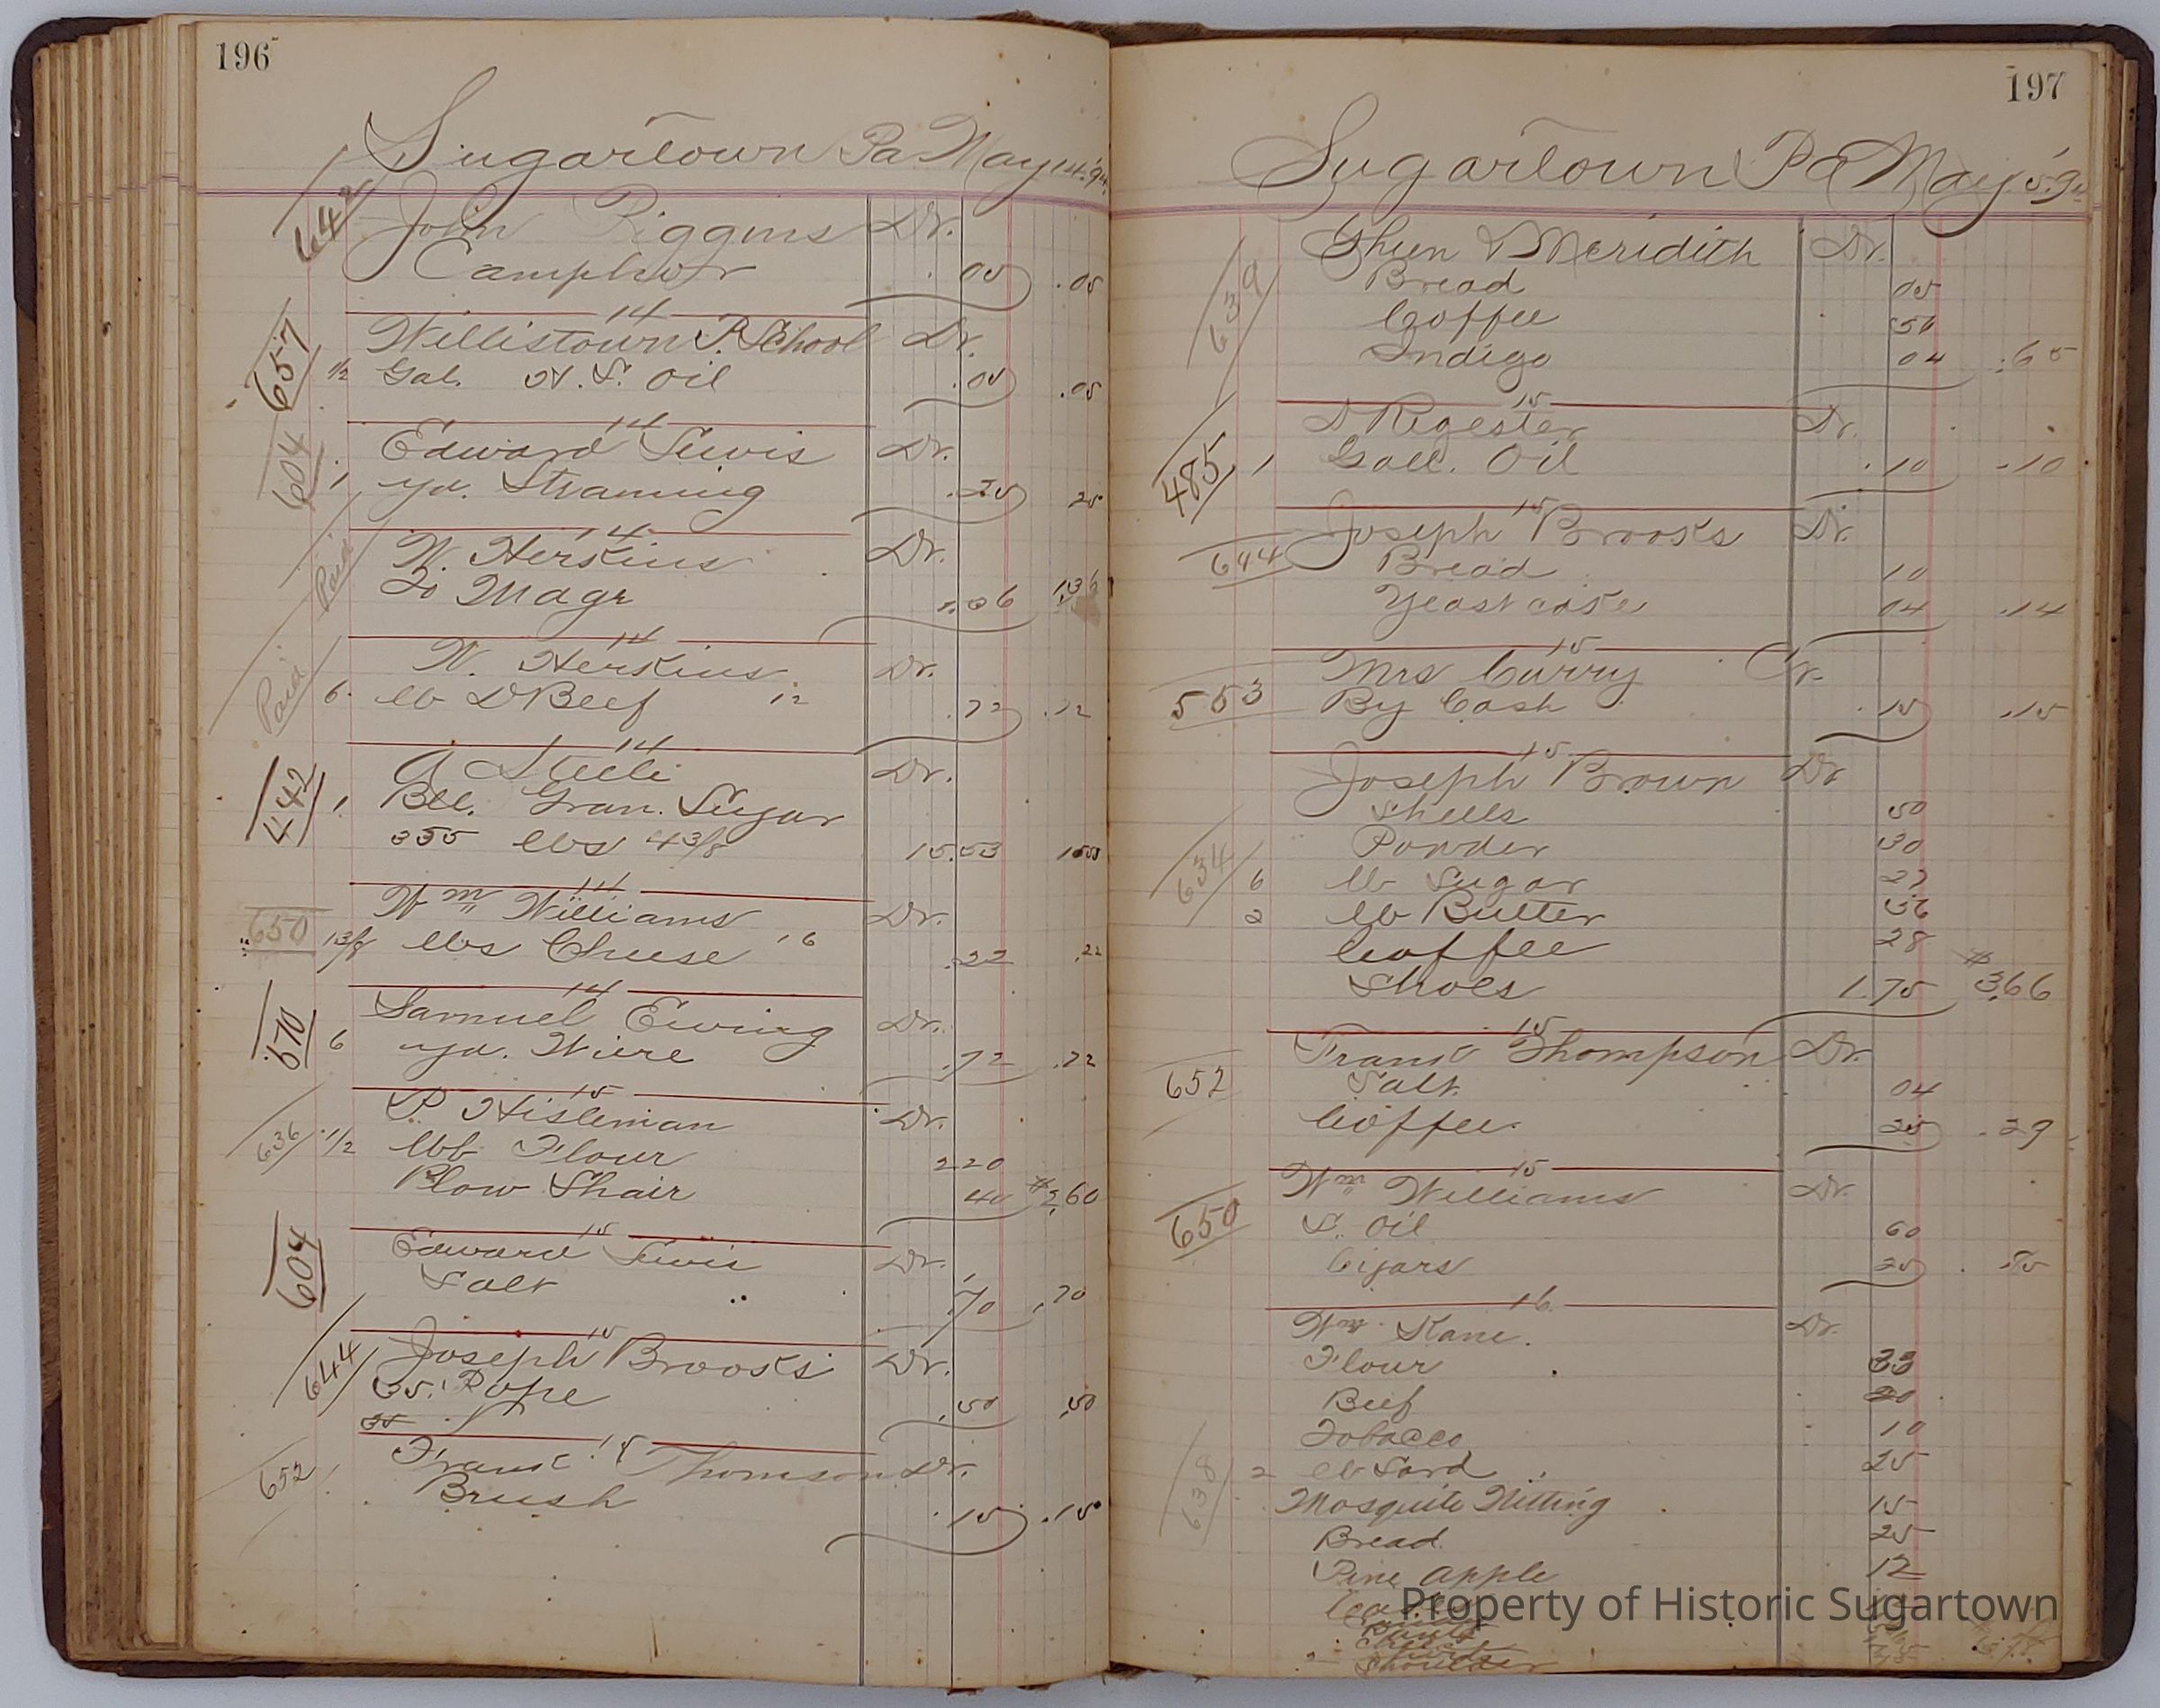 196
Sugartown Pa May 14. 94
642
John Riggins Dr.
Camphor .05 .05
14
657
Willistown P. School Dr.
1/2 Gal. N. S. Oil .05 .05
14
604
Edward Lewis Dr.
1 yd. Straming .25 25
14
Paid
N. Herskins Dr.
To Mdgr 1.36 1.36
14
Paid
N. Herskins Dr.
6 lb D Beef 12 .72 .72
14
442
A Steele Dr.
1 Bbl. Gran. Sugar
355 lbs 4 3/8 15.53 15 53
14
650
Wm Williams Dr.
1 3/8 lbs Cheese 16 .22 .22
14
570
Samuel Ewing Dr.
6 yd. Wiere .72 .72
15
636
P Hisleman Dr.
1/2 bbl Flour 2 20
Plow Shair 40 $2,60
15
604
Edward Lewis Dr.
Salt .70 .70
15
644
Joseph Brooks Dr.
35. Rope .50 .50
35
15
652
Frank Thomson Dr.
1 Brush .15 .15
197
Sugartown Pa May 15. 94
639
Gheen & Meridith Dr.
Bread 05
Coffee 56
Indigo 04 .65
15
485
D Regester Dr.
1 Gall. Oil .10 .10
15
644
Joseph Brooks Dr.
Bread 10
Yeast cake 04 .14
15
553
Mrs Curry Cr.
By Cash .15 .15
15
634
Joseph Brown Dr
Shells 50
Powder 30
6 lb Sugar 27
2 lb Butter 56
Coffee 28
Shoes 1.75 $3.66
15
652
Frank Thompson Dr.
Salt 04
Coffee 25 .29
15
650
Wm Williams Dr.
S. Oil 60
Cigars 25 .85
16
638
Wm Kane. Dr.
Flour 33
Beef 20
Tobacco 10
2 lb Lard 25
Mosquito Nitting 15
Bread 25
Pine apple 12
Shoulder
Property of Historic Sugartown